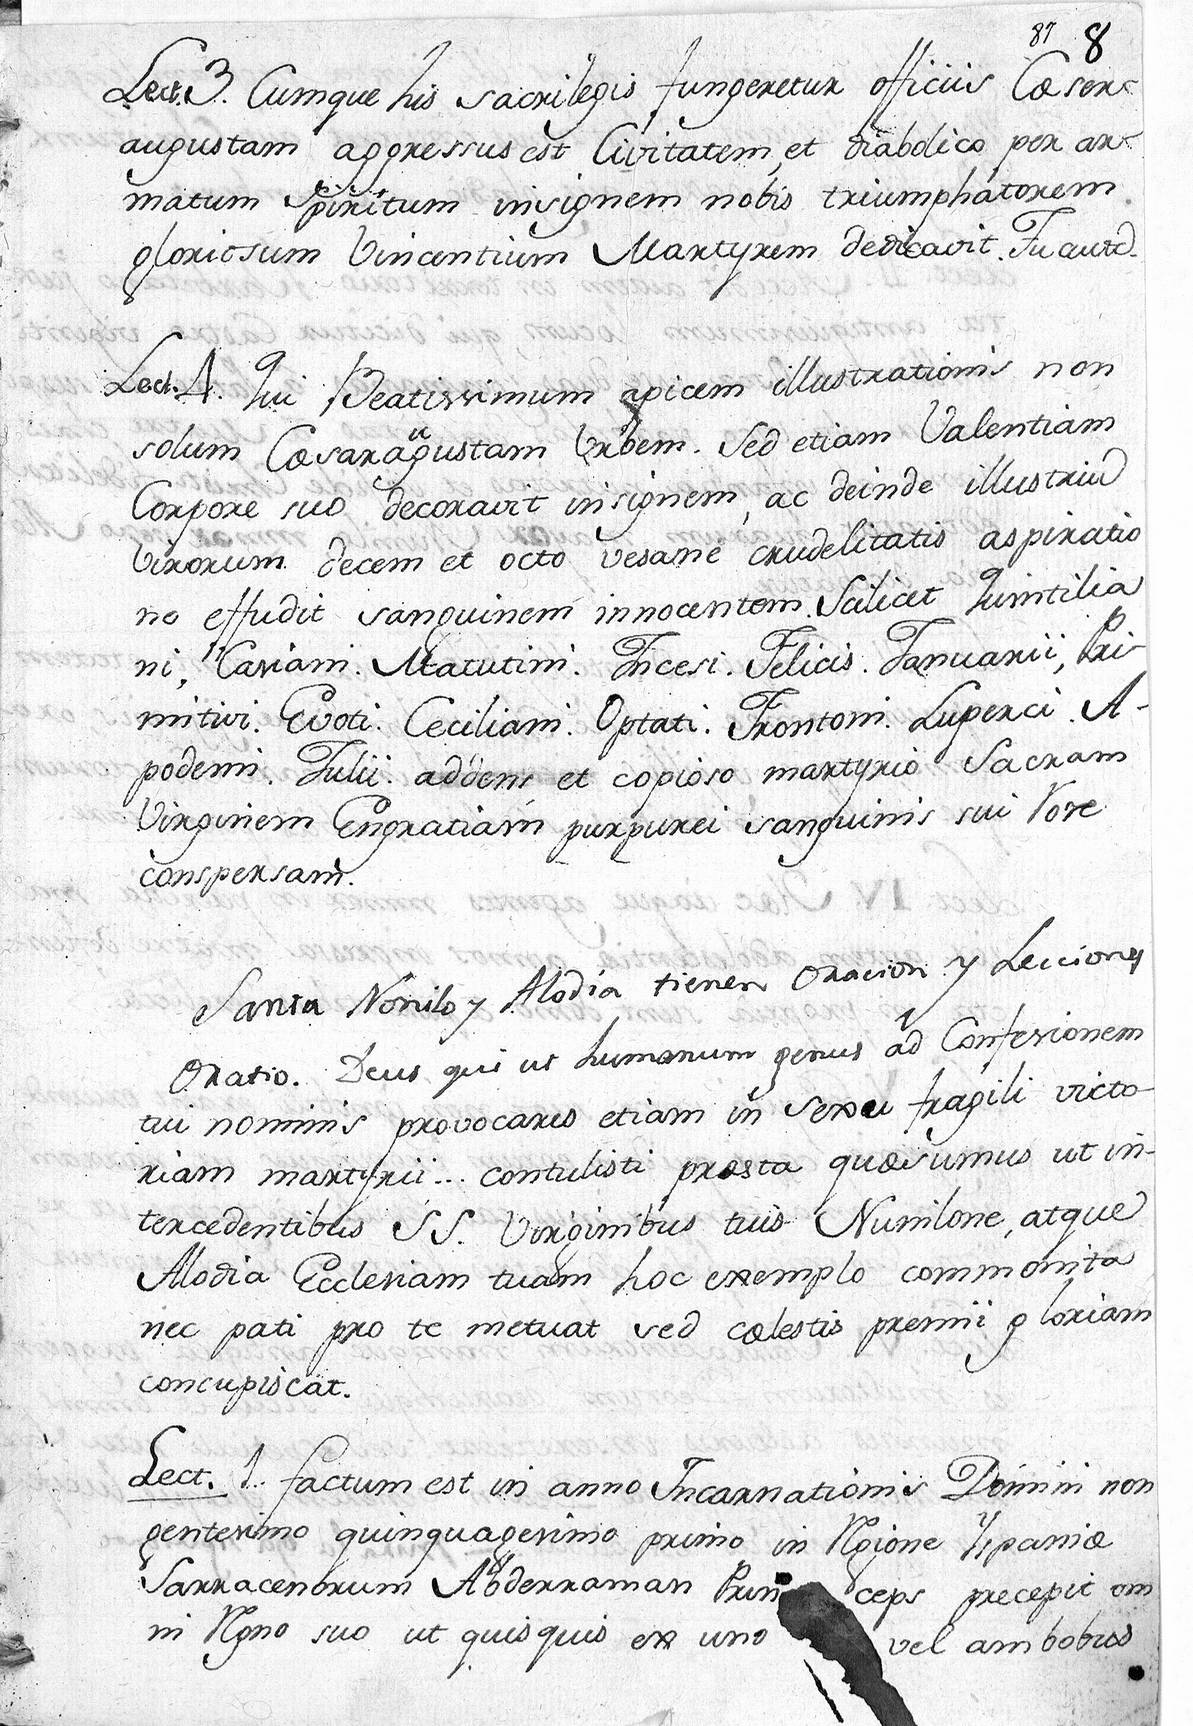 87 8
Lect. 3. Cumque his sacrilegis fungeretur officiis Cæsar
augustam aggressus est Civitatem, et diabolico per ar
matum Spiritum insignem nobis triumphatorem
gloriosum Vincentium Martyrem dedicavit. Tu autẽ.
Lect. 4. Qui Beatissimum apicem illustrationis non
solum Cæsaraugustam Urbem. Sed etiam Valentiam
Corpore suo decoravit insignem, ac deinde illustriũ
virorum decem et octo vesane crudelitatis aspiratio
ne effudit sanguinem innocentem. Scilicet Quintilia
ni, Casiani. Matutini. Incesi. Felicis. Januarii, Pri-
mitivi. Evoti. Ceciliani. Optati. Frontoni. Luperci. A-
podemi. Julii. addens et copioso martyrio Sacram
Virginem Engratiam purpurei sanguinis sui rore
conspersam.
Santa Nonilo y Alodia tienen oracion y Lecciones
Oratio. Deus qui ut humanum genus ad Confesionem
tui nominis provocares etiam in sexu fragili victo-
riam martyrii... contulisti præsta quæsumus ut in-
tercedentibus SS. Virginibus tuis Nunilone, atque
Alodia Ecclesiam tuam hoc exemplo commonita
nec pati pro te metuat sed cœlestis premii gloriam
concupiscat.
Lect. 1. factum est in anno Incarnationis Domini non
gentesimo quinquagesimo primo in Rgione Yspaniæ
Sarracenorum Abderraman Prin ceps precepit om
ni Rgno suo ut quisquis ex uno vel ambobus